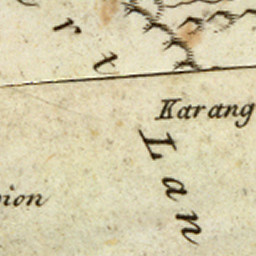 r t
Karang
Lan
nion